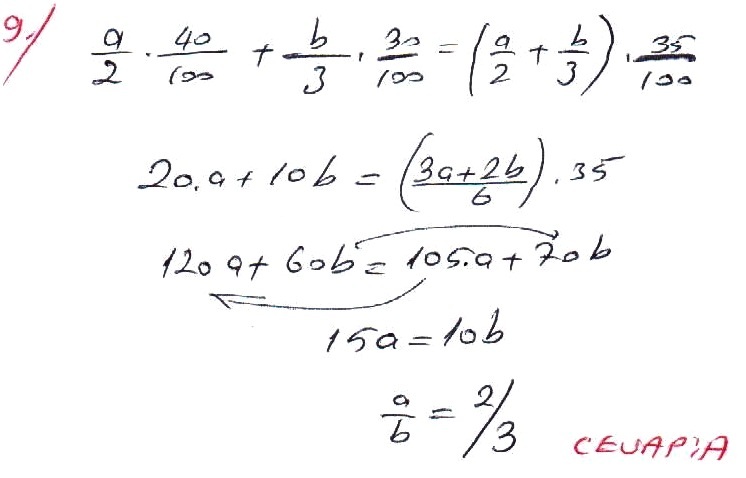 9-) a/2 . 40/100 + b/3 . 30/100 = (a/2 + b/3) . 35/100
20.a + 10b = ((3a+2b)/6) . 35
120a + 60b = 105.a + 70b
15a = 10b
a/b = 2/3
CEVAP:A